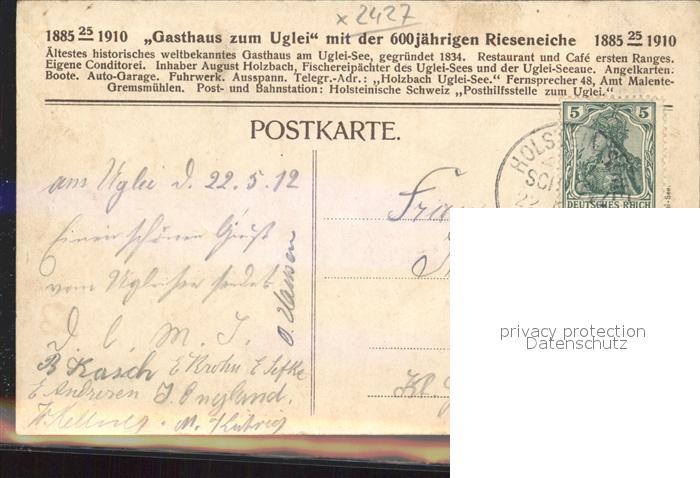 x 2427
1885 25 1910 „Gasthaus zum Uglei“ mit der 600jährigen Rieseneiche 1885 25 1910
Ältestes historisches weltbekanntes Gasthaus am Uglei-See, gegründet 1834. Restaurant und Café ersten Ranges.
Eigene Conditorei. Inhaber August Holzbach, Fischereipächter des Uglei-Sees und der Uglei-Seeaue. Angelkarten.
Boote. Auto-Garage. Fuhrwerk. Ausspann. Telegr.-Adr.: „Holzbach Uglei-See.“ Fernsprecher 48, Amt Malente-
Gremsmühlen. Post- und Bahnstation: Holsteinische Schweiz „Posthilfsstelle zum Uglei.“
5 5
DEUTSCHES REICH
HOLST
SCH
POSTKARTE.
am Uglei d. 22.5.12
Einen schönen Gruß
vom Ugleisee sendet
O. Hansen
B Kasch E Krohn E
E Andresen J. England.
Fra
Kl
privacy protection
Datenschutz